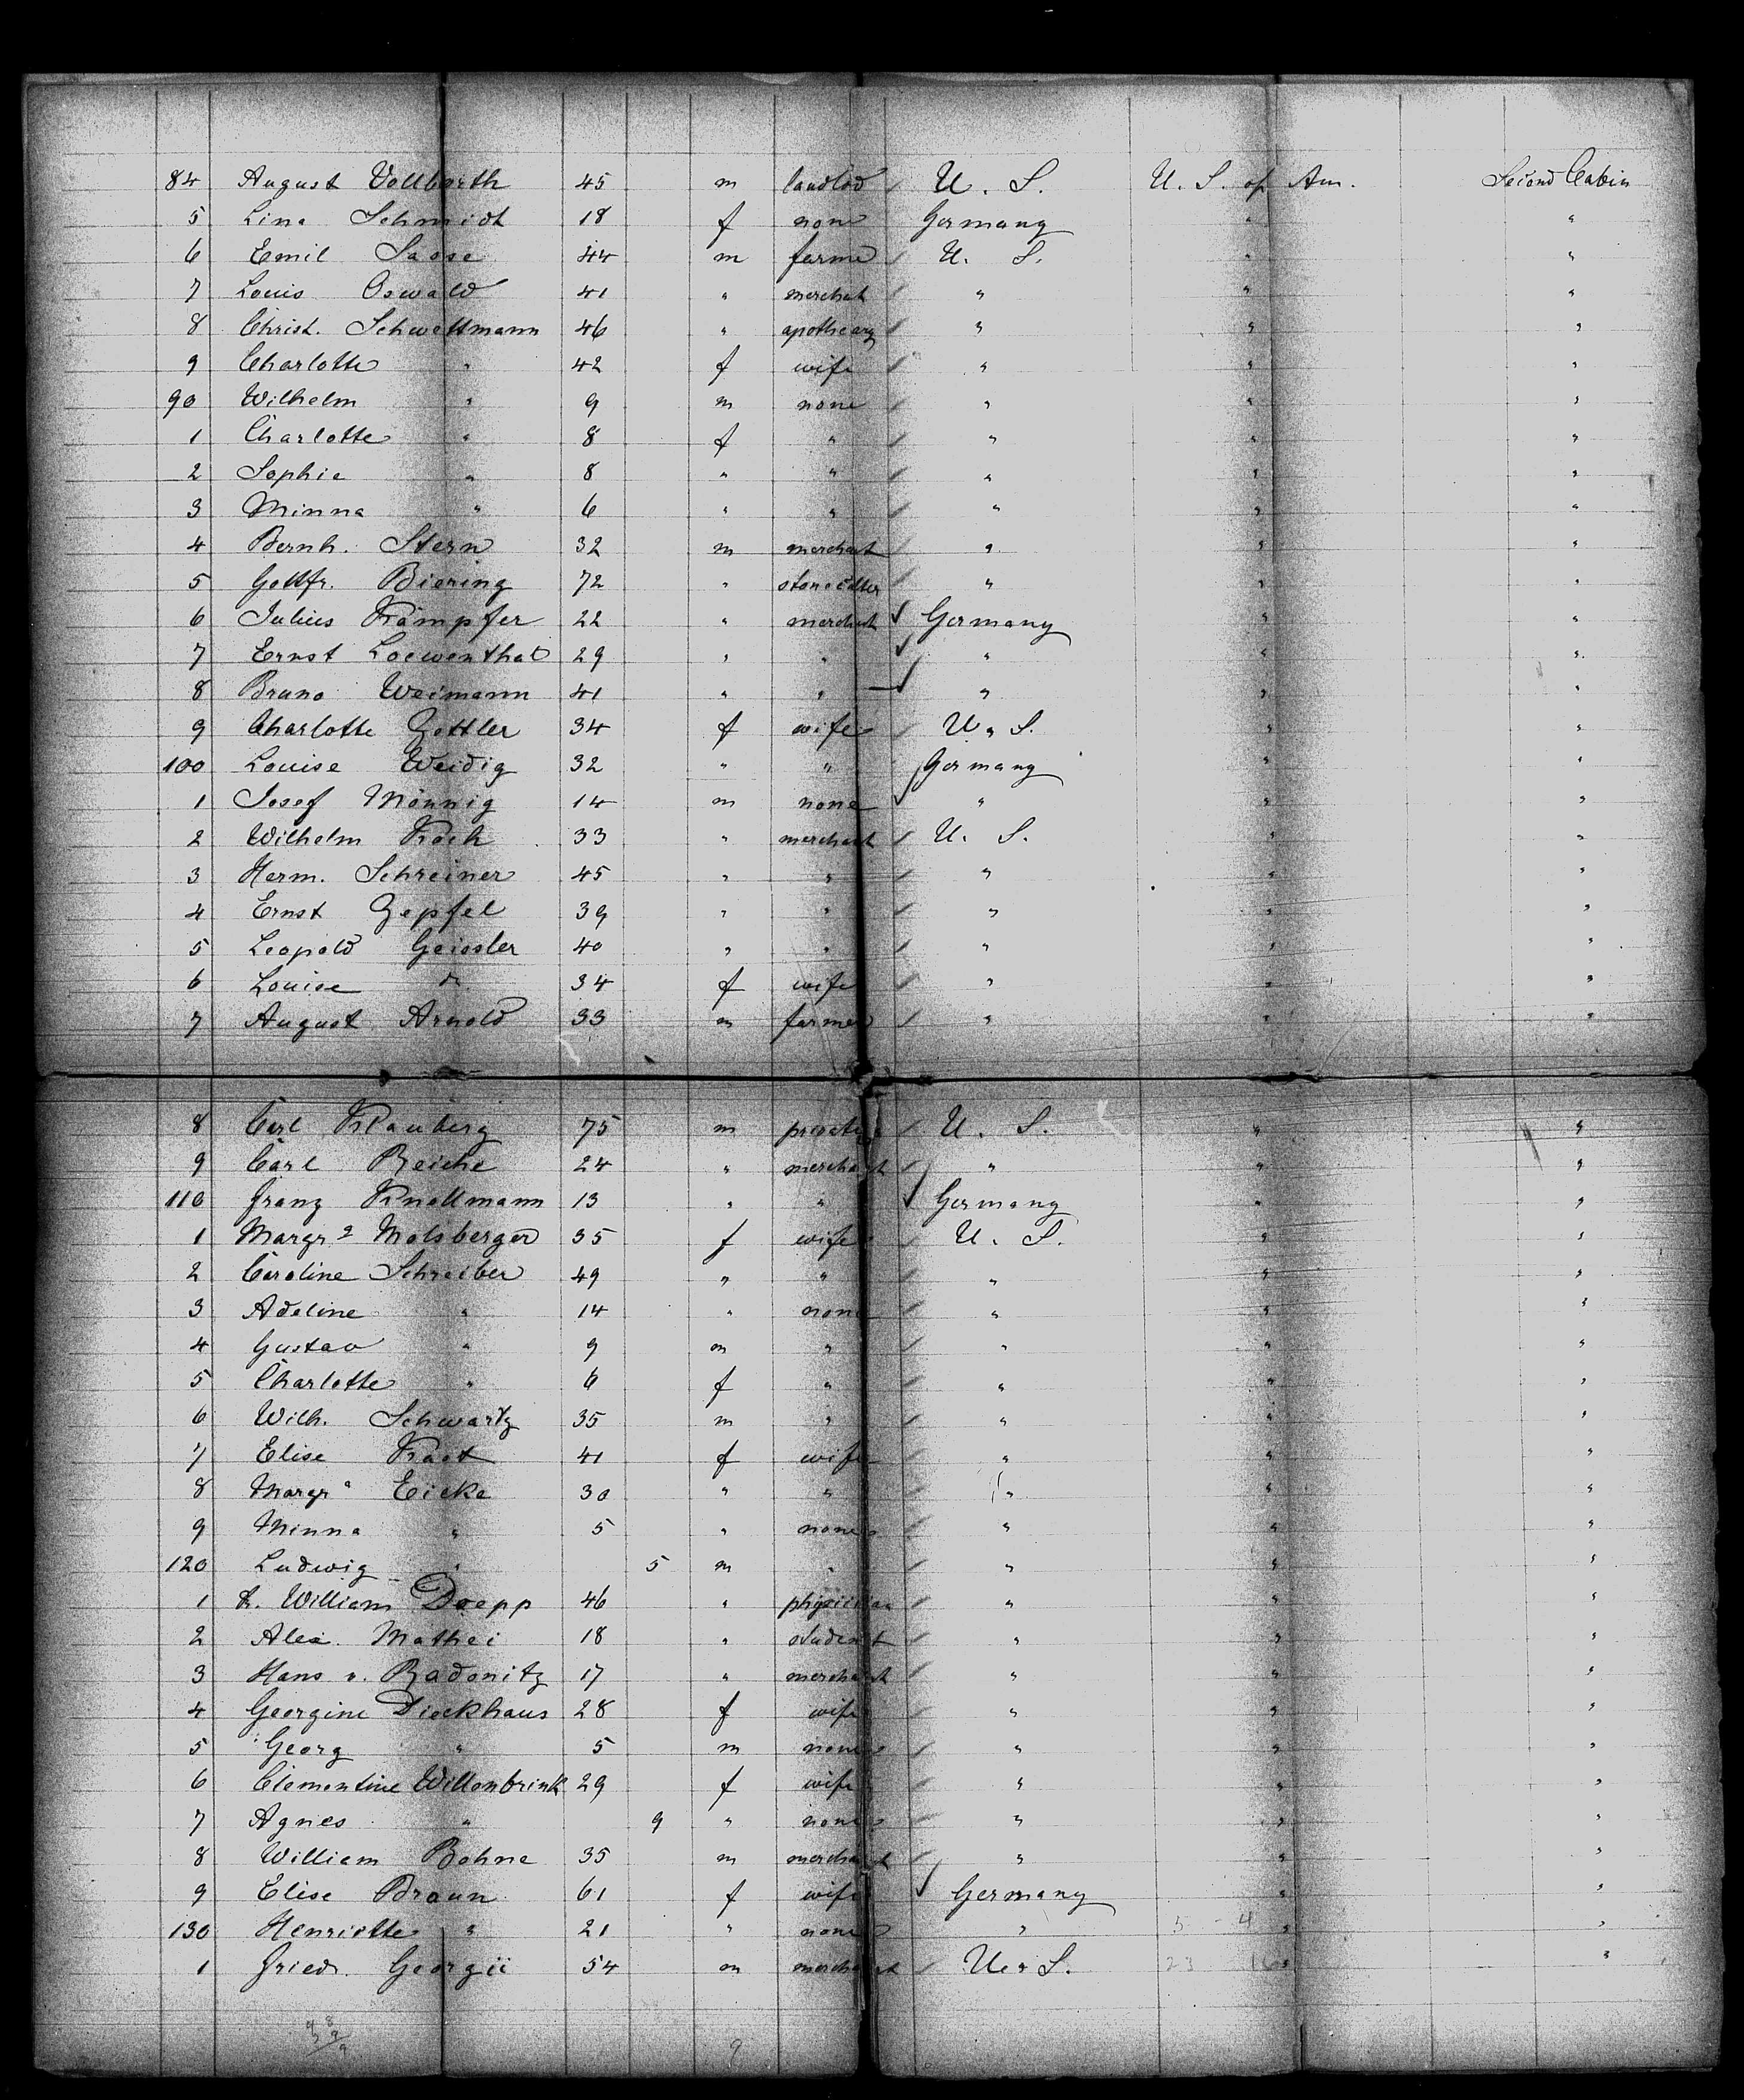 84 August Vollborth 45 m landlod / U. S. U. S. of Am. Second Cabin
5 Lina Schmidt 18 f none Germany " "
6 Emil Sasse 44 m farme / U. S. " "
7 Louis Oswald 41 " merchat / " " "
8 Christ. Schwettmann 46 " apothecary / " " "
9 Charlotte " 42 f wife / " " "
90 Wilhelm " 9 m none / " " "
1 Charlotte " 8 f " / " " "
2 Sophie " 8 " " / " " "
3 Minna " 6 " " / " " "
4 Bernh. Stern 32 m merchant / " " "
5 Gottfr. Biering 72 " stonecutter / " " "
6 Julius Kämpfer 22 " merchant ✓ Germany " "
7 Ernst Loewenthal 29 " " ✓ " " "
8 Bruno Weimann 41 " " ✓ " " "
9 Charlotte Gettler 34 f wife / U. S. " "
100 Louise Weidig 32 " " Germany " "
1 Josef Mönnig 14 m none ✓ " " "
2 Wilhelm Koch 33 " merchant / U. S. " "
3 Herm. Schreiner 45 " " / " " "
4 Ernst Gepfel 39 " " / " " "
5 Leopold Geissler 40 " " / " " "
6 Louise do. 34 f wife / " " "
7 August Arnold 33 m farmer / " " "
8 Carl Klauberg 75 m private / U. S. " "
9 Carl Reiche 24 " merchant / " " "
110 Franz Knollmann 13 " " ✓ Germany " "
1 Margr. Molsberger 35 f wife / U. S. " "
2 Caroline Schreiber 49 " " / " " "
3 Adeline " 14 " none / " " "
4 Gustav " 9 m " / " " "
5 Charlotte " 6 f " / " " "
6 Wilh. Schwartz 35 m " / " " "
7 Elise Kast 41 f wife / " " "
8 Margr. Eicke 30 " " / " " "
9 Minna " 5 " none / " " "
120 Ludwig " 5 m " / " " "
1 Dr. William Doepp 46 " physician / " " "
2 Alex. Mathei 18 " student / " " "
3 Hans v. Radonitz 17 " merchant / " " "
4 Georgine Dieckhaus 28 f wife / " " "
5 Georg " 5 m none / " " "
6 Clementine Willenbrink 29 f wife / " " "
7 Agnes " 9 " none / " " "
8 William Bohne 35 m merchant / " " "
9 Elise Braun 61 f wife ✓ Germany " "
130 Henriette " 21 " none " 5 - 4 " "
1 Fried. Georgii 54 m merchant / U. S. 23 16 " "
9